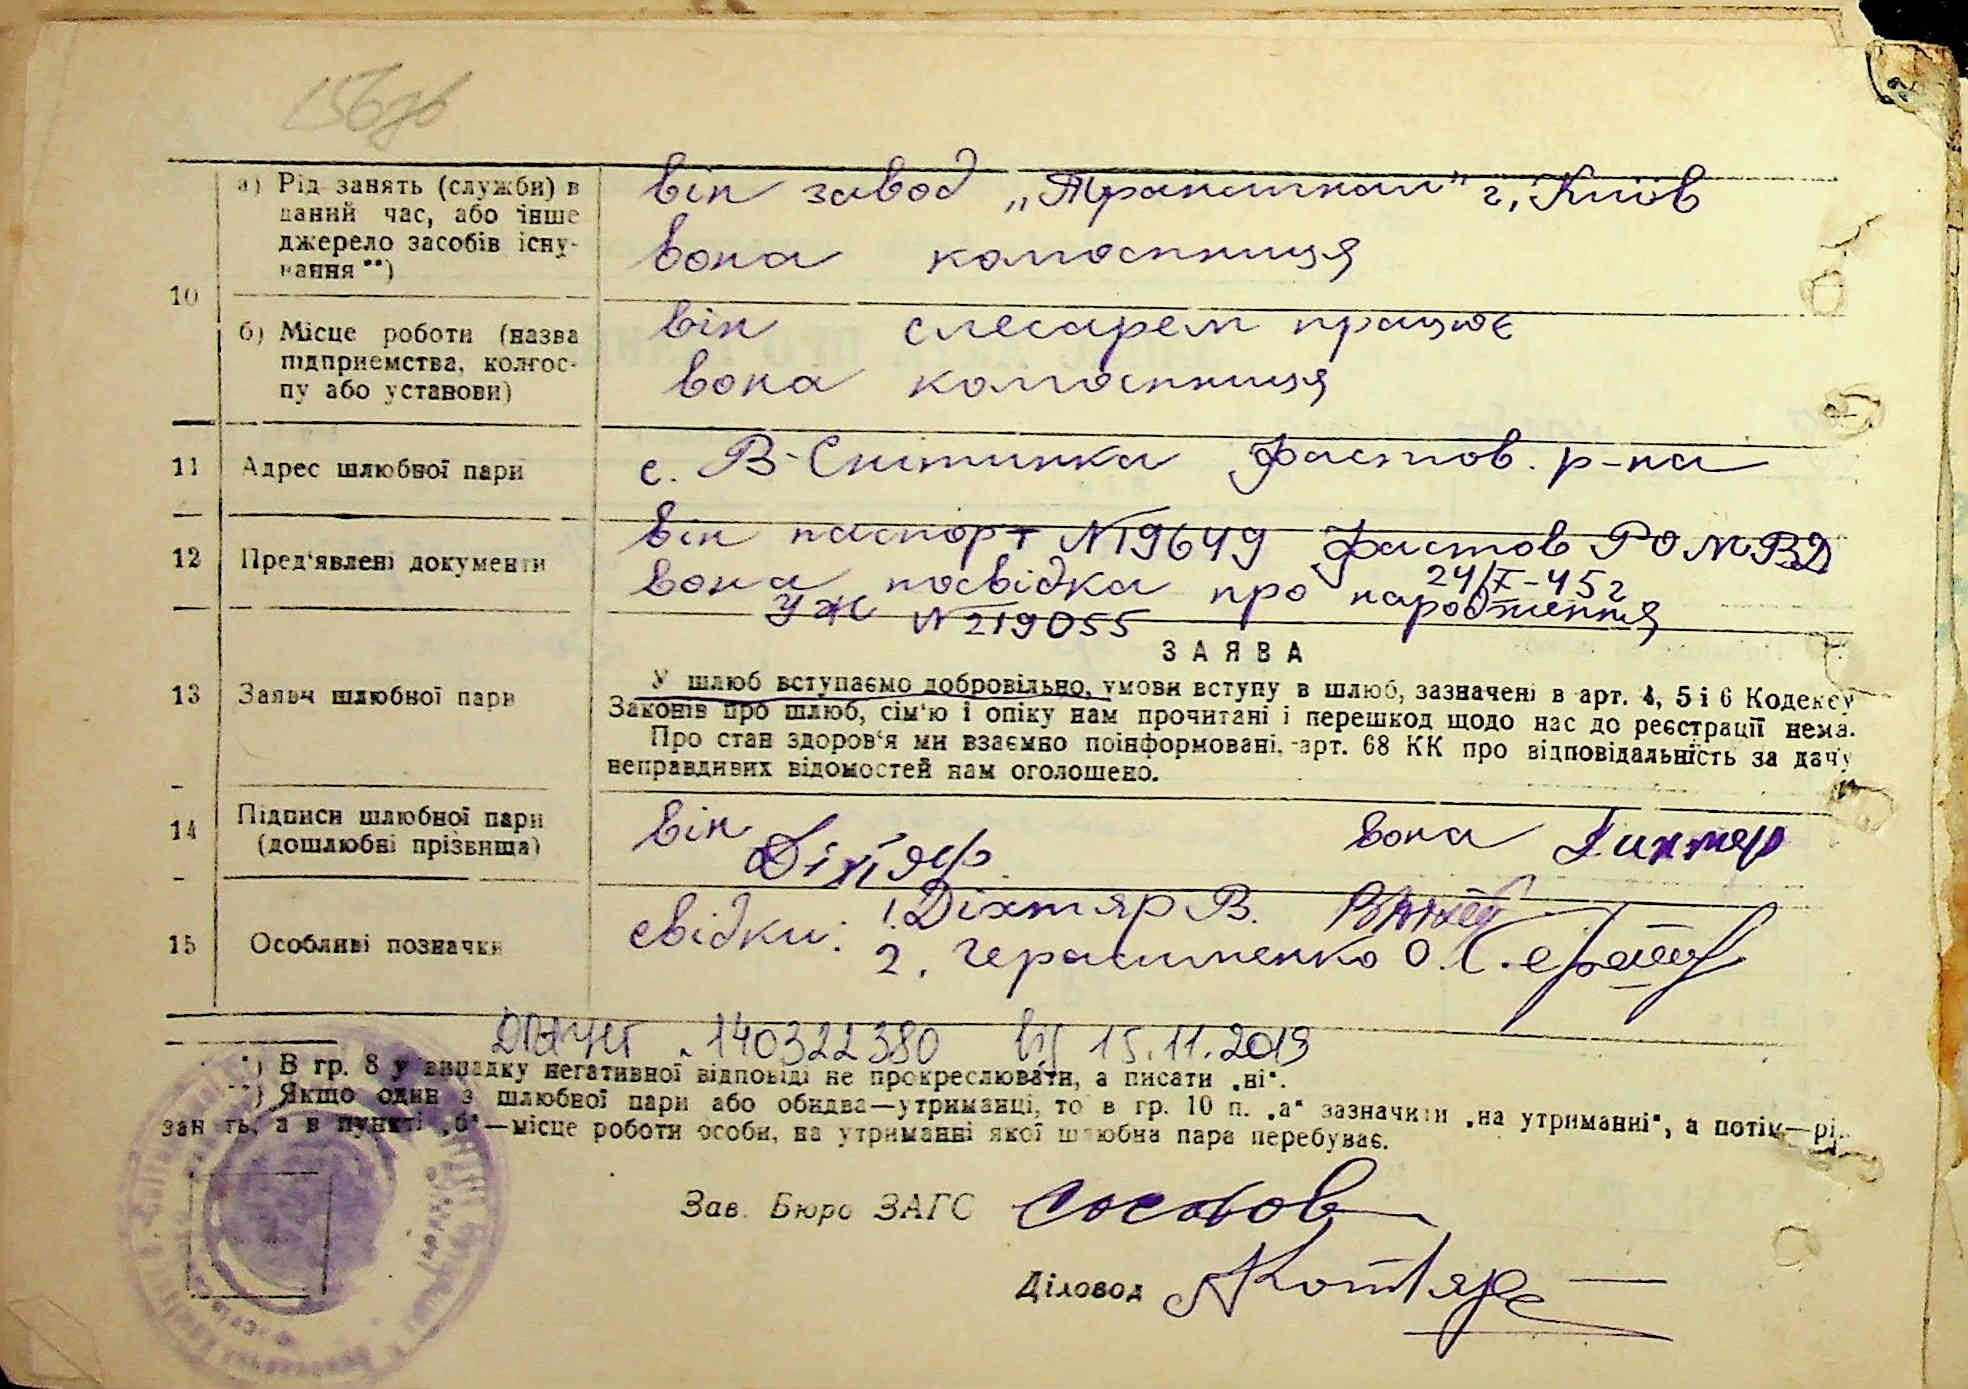 156зв
а) Рід занять (служби) в даний час, або інше джерело засобів існування **)
він завод „Транссигнал" г. Київ
вона колгоспниця
10
б) Місце роботи (назва підприємства, колгоспу або установи)
він слесарем працює
вона колгоспниця
11 Адрес шлюбної пари
с. В-Снітинка Фастов. р-на
12 Пред'явлені документи
він паспорт № 19649 Фастов РО МВД
24/X-45г
вона посвідка про народження
УЖ № 219055
ЗАЯВА
13 Заява шлюбної пари
У шлюб вступаємо добровільно, умови вступу в шлюб, зазначені в арт. 4, 5 і 6 Кодексу
Законів про шлюб, сім'ю і опіку нам прочитані і перешкод щодо нас до реєстрації нема.
Про стан здоров'я ми взаємно поінформовані, арт. 68 КК про відповідальність за дачу
неправдивих відомостей нам оголошено.
14 Підписи шлюбної пари (дошлюбні прізвища)
він Діхтяр вона
15 Особливі позначки
свідки: 1. Діхтяр В.
2. Герасименко О.С.
140322380 від 15.11.2019
*) В гр. 8 у випадку негативної відповіді не прокреслювати, а писати „ні".
**) Якщо один з шлюбної пари або обидва—утриманці, то в гр. 10 п. „а" зазначити „на утриманні", а потім—рід
занять, а в пункті „б"—місце роботи особи, на утриманні якої шлюбна пара перебуває.
Зав. Бюро ЗАГС
Діловод